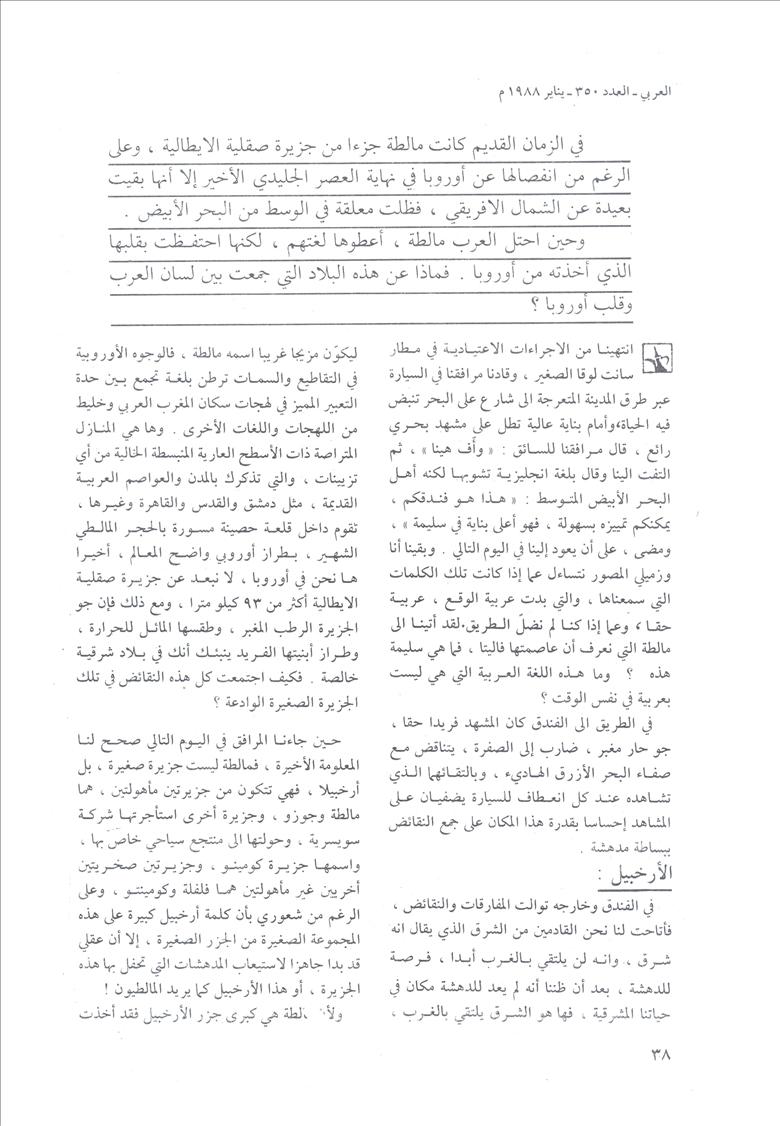 العربي ـ العدد ٣٥٠ ـ يناير ١٩٨٨ م
في الزمان القديم كانت مالطة جزءا من جزيرة صقلية الايطالية ، وعلى
الرغم من انفصالها عن أوروبا في نهاية العصر الجليدي الأخير إلا أنها بقيت
بعيدة عن الشمال الافريقي ، فظلت معلقة في الوسط من البحر الأبيض .
وحين احتل العرب مالطة ، أعطوها لغتهم ، لكنها احتفظت بقلبها
الذي أخذته من أوروبا . فماذا عن هذه البلاد التي جمعت بين لسان العرب
وقلب أوروبا ؟
انتهينا من الاجراءات الاعتيادية في مطار
سانت لوقا الصغير ، وقادنا مرافقنا في السيارة
عبر طرق المدينة المتعرجة الى شارع على البحر تنبض
فيه الحياة، وأمام بناية عالية تطل على مشهد بحري
رائع ، قال مرافقنا للسائق : « وأَف هينا » ، ثم
التفت الينا وقال بلغة انجليزية تشوبها لكنه أهل
البحر الأبيض المتوسط : « هذا هو فندقكم ،
يمكنكم تمييزه بسهولة ، فهو أعلى بناية في سليمة » ،
ومضى ، على أن يعود إلينا في اليوم التالي . وبقينا أنا
وزميلي المصور نتساءل عما إذا كانت تلك الكلمات
التي سمعناها ، والتي بدت عربية الوقع ، عربية
حقا ، وعما إذا كنا لم نضلّ الطريق. لقد أتينا الى
مالطة التي نعرف أن عاصمتها فاليتا ، فما هي سليمة
هذه ؟ وما هذه اللغة العربية التي هي ليست
بعربية في نفس الوقت ؟
في الطريق الى الفندق كان المشهد فريدا حقا ،
جو حار مغبر ، ضارب إلى الصفرة ، يتناقض مع
صفاء البحر الأزرق الهاديء ، وبالتقائهما الذي
تشاهده عند كل انعطاف للسيارة يضفيان على
المشاهد إحساسا بقدرة هذا المكان على جمع النقائض
ببساطة مدهشة .
الأرخبيل :
في الفندق وخارجه توالت المفارقات والنقائض ،
فأتاحت لنا نحن القادمين من الشرق الذي يقال انه
شرق ، وانه لن يلتقي بالغرب أبدا ، فرصة
للدهشة ، بعد أن ظننا أنه لم يعد للدهشة مكان في
حياتنا المشرقية ، فها هو الشرق يلتقي بالغرب ،
ليكوّن مزيجا غريبا اسمه مالطة ، فالوجوه الأوروبية
في التقاطيع والسمات ترطن بلغة تجمع بين حدة
التعبير المميز في لهجات سكان المغرب العربي وخليط
من اللهجات واللغات الأخرى . وها هي المنازل
المتراصة ذات الأسطح العارية المنبسطة الخالية من أي
تزيينات ، والتي تذكرك بالمدن والعواصم العربية
القديمة ، مثل دمشق والقدس والقاهرة وغيرها ،
تقوم داخل قلعة حصينة مسورة بالحجر المالطي
الشهير ، بطراز أوروبي واضح المعالم ، أخيرا
ها نحن في أوروبا ، لا نبعد عن جزيرة صقلية
الايطالية أكثر من ٩٣ كيلو مترا ، ومع ذلك فإن جو
الجزيرة الرطب المغبر ، وطقسها المائل للحرارة ،
وطراز أبنيتها الفريد ينبئك أنك في بلاد شرقية
خالصة . فكيف اجتمعت كل هذه النقائض في تلك
الجزيرة الصغيرة الوادعة ؟
حين جاءنا المرافق في اليوم التالي صحح لنا
المعلومة الأخيرة ، فمالطة ليست جزيرة صغيرة ، بل
أرخبيلا ، فهي تتكون من جزيرتين مأهولتين ، هما
مالطة وجوزو ، وجزيرة أخرى استأجرتها شركة
سويسرية ، وحولتها الى منتجع سياحي خاصّ بها ،
واسمها جزيرة كومينو ، وجزيرتين صخريتين
أخريين غير مأهولتين هما فلفلة وكومينتو ، وعلى
الرغم من شعوري بأن كلمة أرخبيل كبيرة على هذه
المجموعة الصغيرة من الجزر الصغيرة ، إلا أن عقلي
قد بدا جاهزا لاستيعاب المدهشات التي تحفل بها هذه
الجزيرة ، أو هذا الأرخبيل كما يريد المالطيون !
هي كبرى جزر الأرخبيل فقد أخذت
٣٨